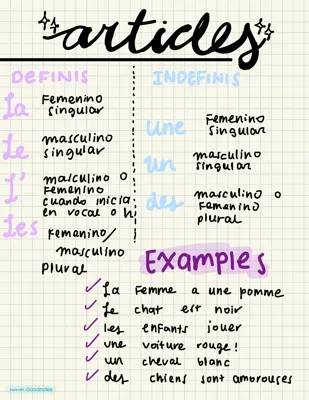 articles
DEFINIS
La
Femenino
singular
Le
masculino
singular
L'
masculino o
Femenino
cuando inicia
en vocal o h
Les
Femenino/
masculino
plural
INDEFINIS
une
Femenino
singular
un
masculino
singular
des
masculino o
Femenino
plural
Examples
La Femme a une pomme
Le chat est noir
les enfants jouer
une voiture rouge!
un cheval blanc
des chiens sont amorouses
Made with Goodnotes